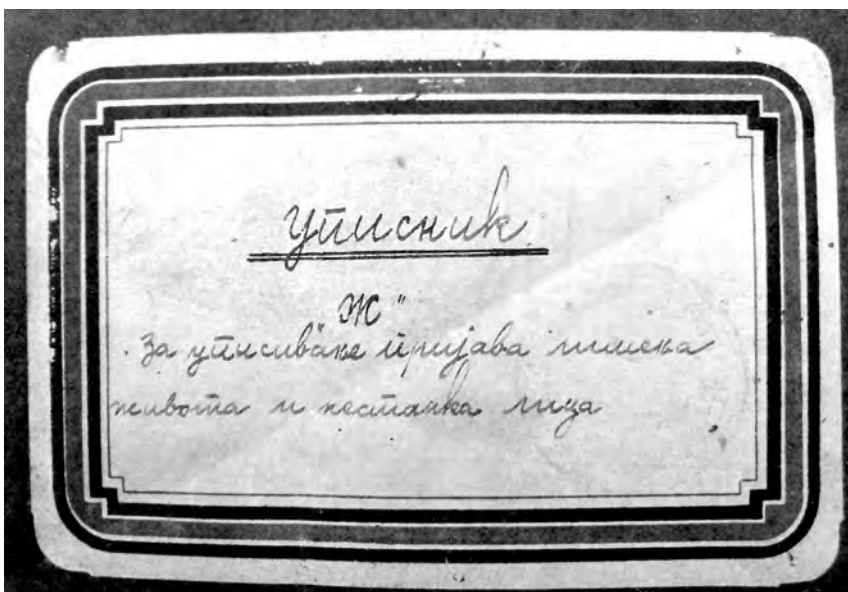 Уписник
Ж"
За уписиване пријава лишена
живота и нестанка лица